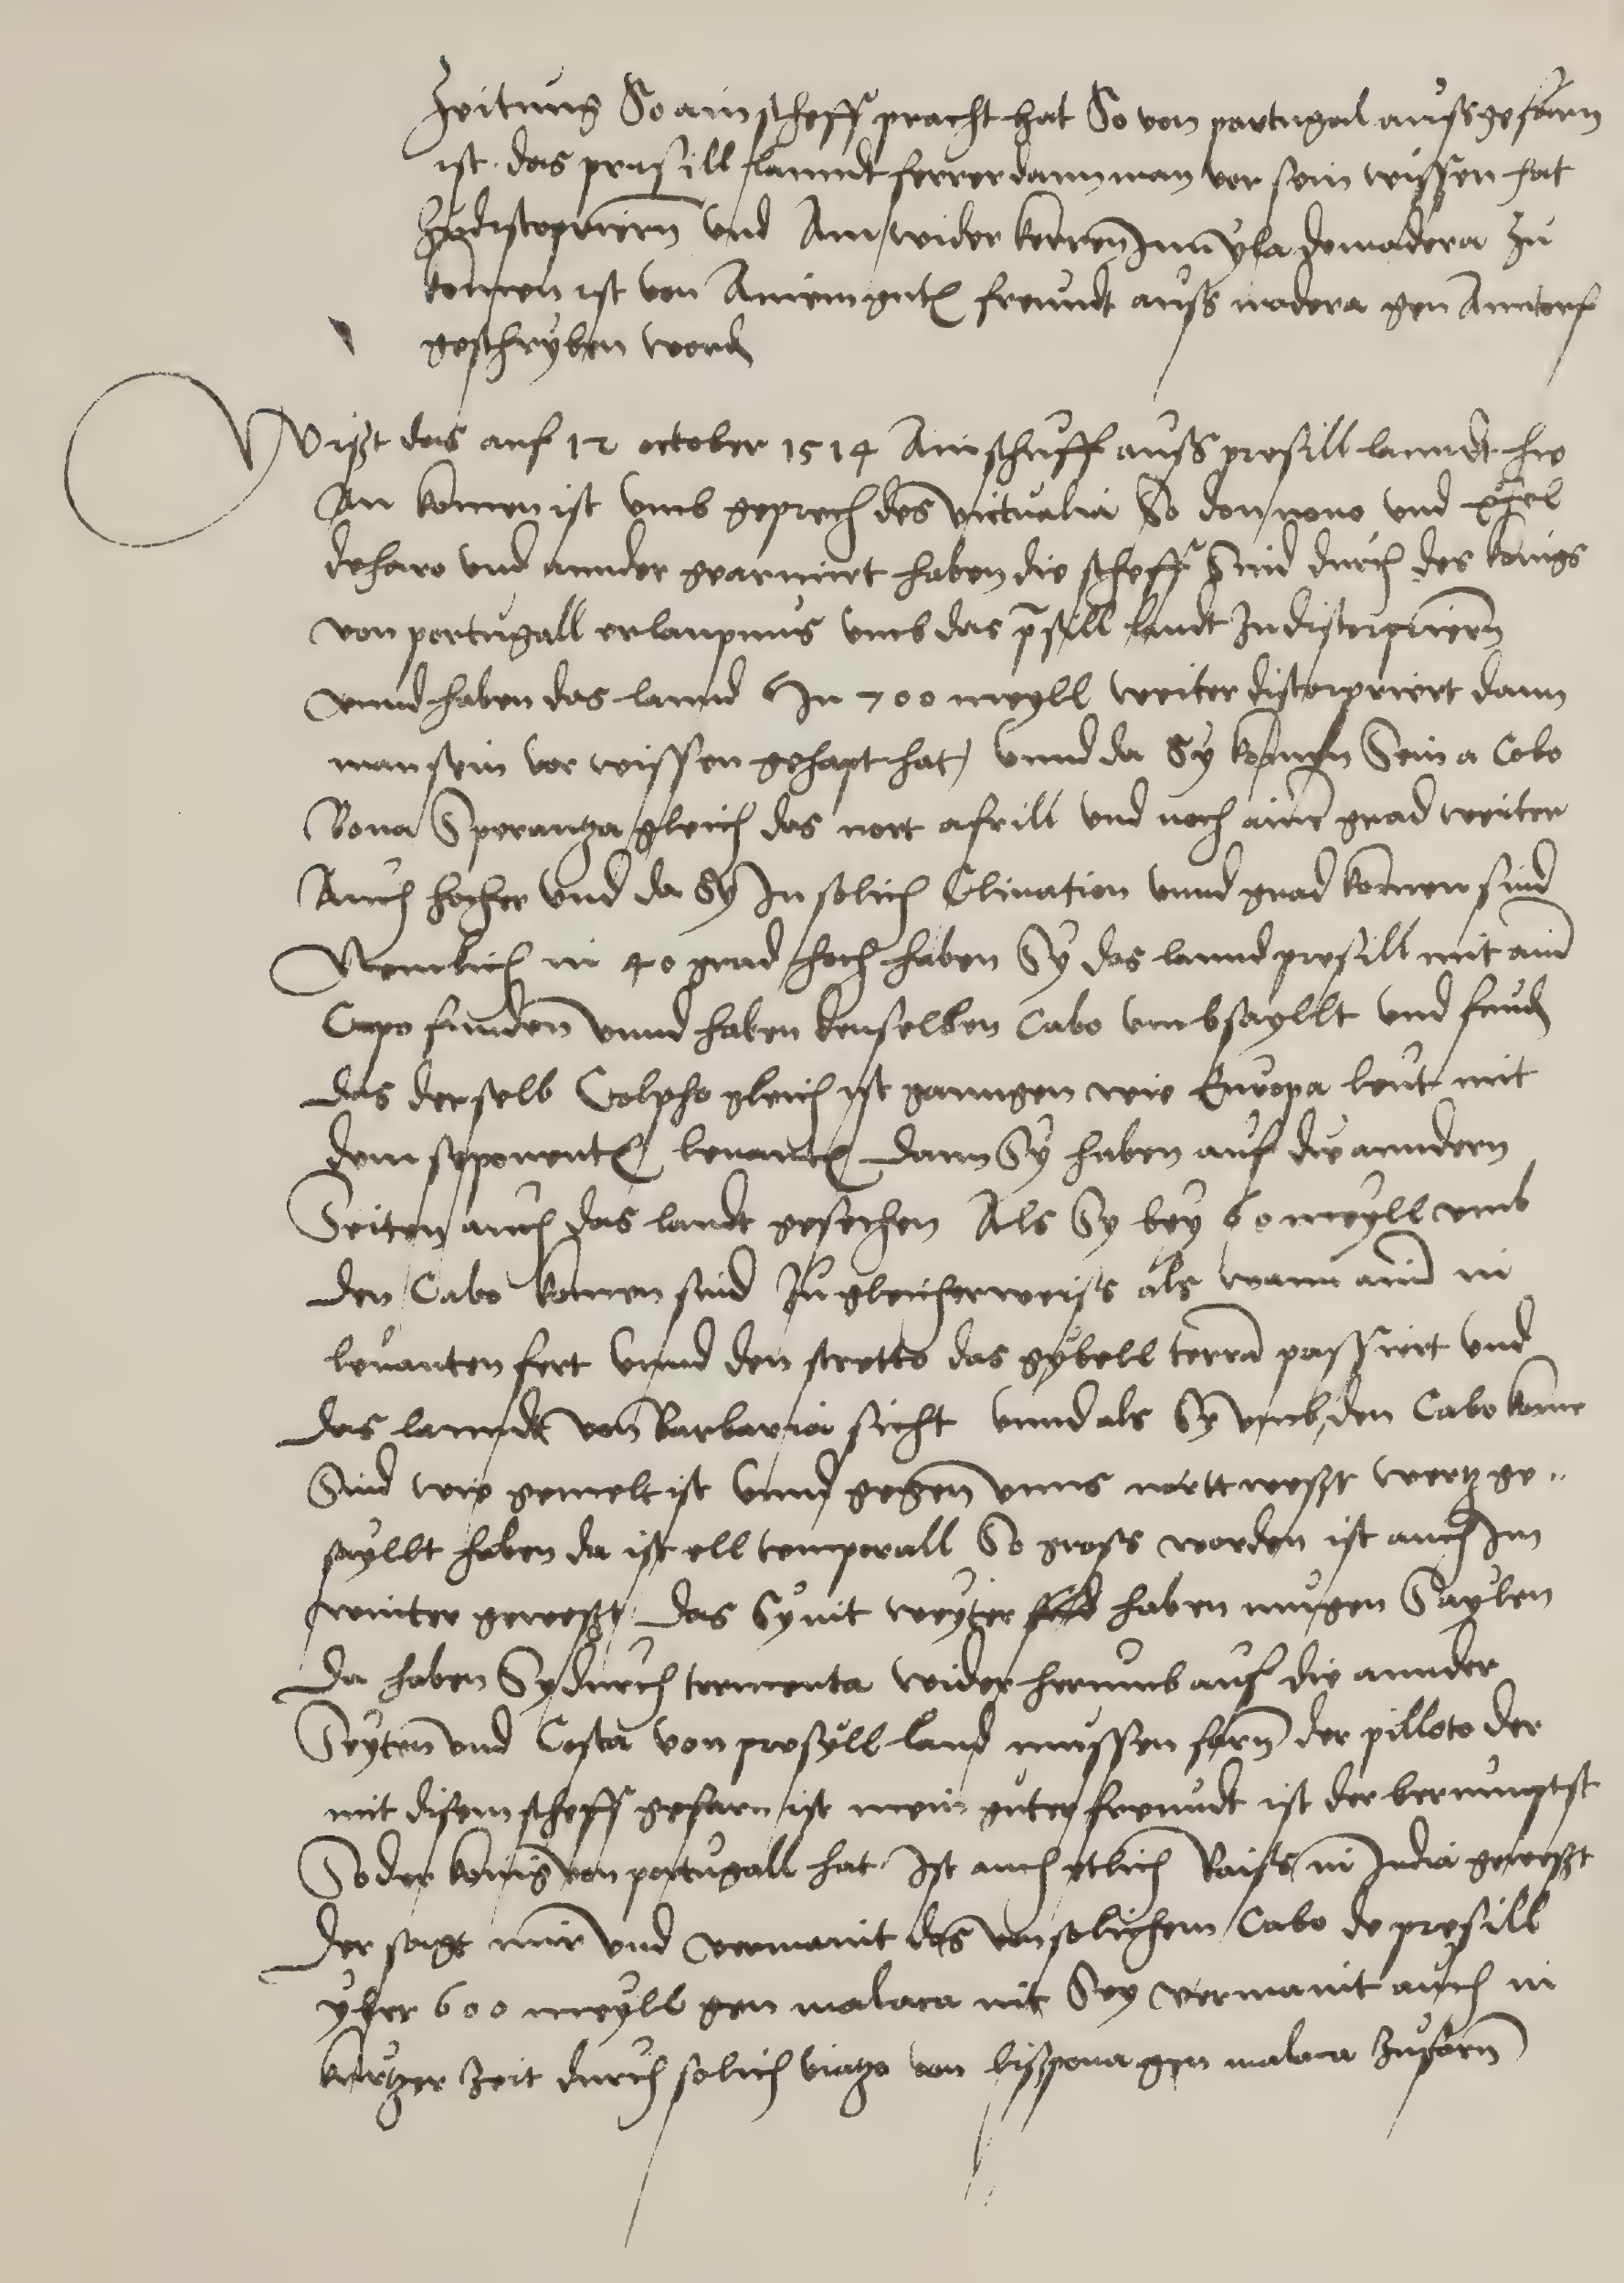 Zeitung So ain scheff pracht hat So von portugal auss gefarn
ist das prasill lanndt ferrer dann man vor sein wissen hat
Zu discoprieren und Am wider kerren Inn ysla de madera Zu
komen ist von Ainem gut freundt auss madera gen Anntorf
geschryben word
Wisst das auf 12 october 1514 Ain schyff auss presill lanndt hie
An komen ist umb geprech des victualia So don nono und xp̄el
de haro und annder gearmirt haben die scheff Sind durch des konigs
von portugall erlaupnus umb das p̄sill landt Zu discoprieren
unnd haben das lannd In 700 meyll weiter discopriert dann
man sein vor wissen gehapt hat, unnd da Sy komen Sein a Cobo
Bona Sperantza gleich das nort afrill und noch ainē grad weiter
Auch hocher und da Sy In solich Clination unnd grad komen sind
Nemlich in 40 grad hoch haben Sy das lannd presill mit ainē
Capo funden unnd haben denselben Cabo umbsayllt und feud
das derselb Colpho gleich ist ganngen wie Europa leut mit
dem seponent levantē dann Sy haben auf die anndern
Seiten auch das landt gesechen Als Sy bey 60 meyll umb
den Cabo komen sind Zu gleicherweiss als wann ainē in
levanten fert unnd den stretto das gybell terrā passiert und
das lanndt von Barbaria sicht unnd als Sy umb den Cabo kome
Sind wie gemelt ist unnd gegen unns nortt wesst wertz ge..
sayllt haben da ist ell temporall So gross worden ist auch Im
winter gewesst, das Sy nit weyter haben mugen Saylen
Da haben Sy durch tormenta wider herumb auf die annder
Seyten und Costa von presyll land mussen farn der pilloto der
mit disem scheff gefarn ist mein guter freundt ist der berumptst
So der konig von portugall hat Ist auch etlich Raiss in India gewesst
der sagt mir und vermaint das von solichem Cabo de presill
yber 600 meyll gen malaca nit Sey vermaint auch in
kurtzer Zeit durch solich viatzo von lissbona gen malaca Zu farn